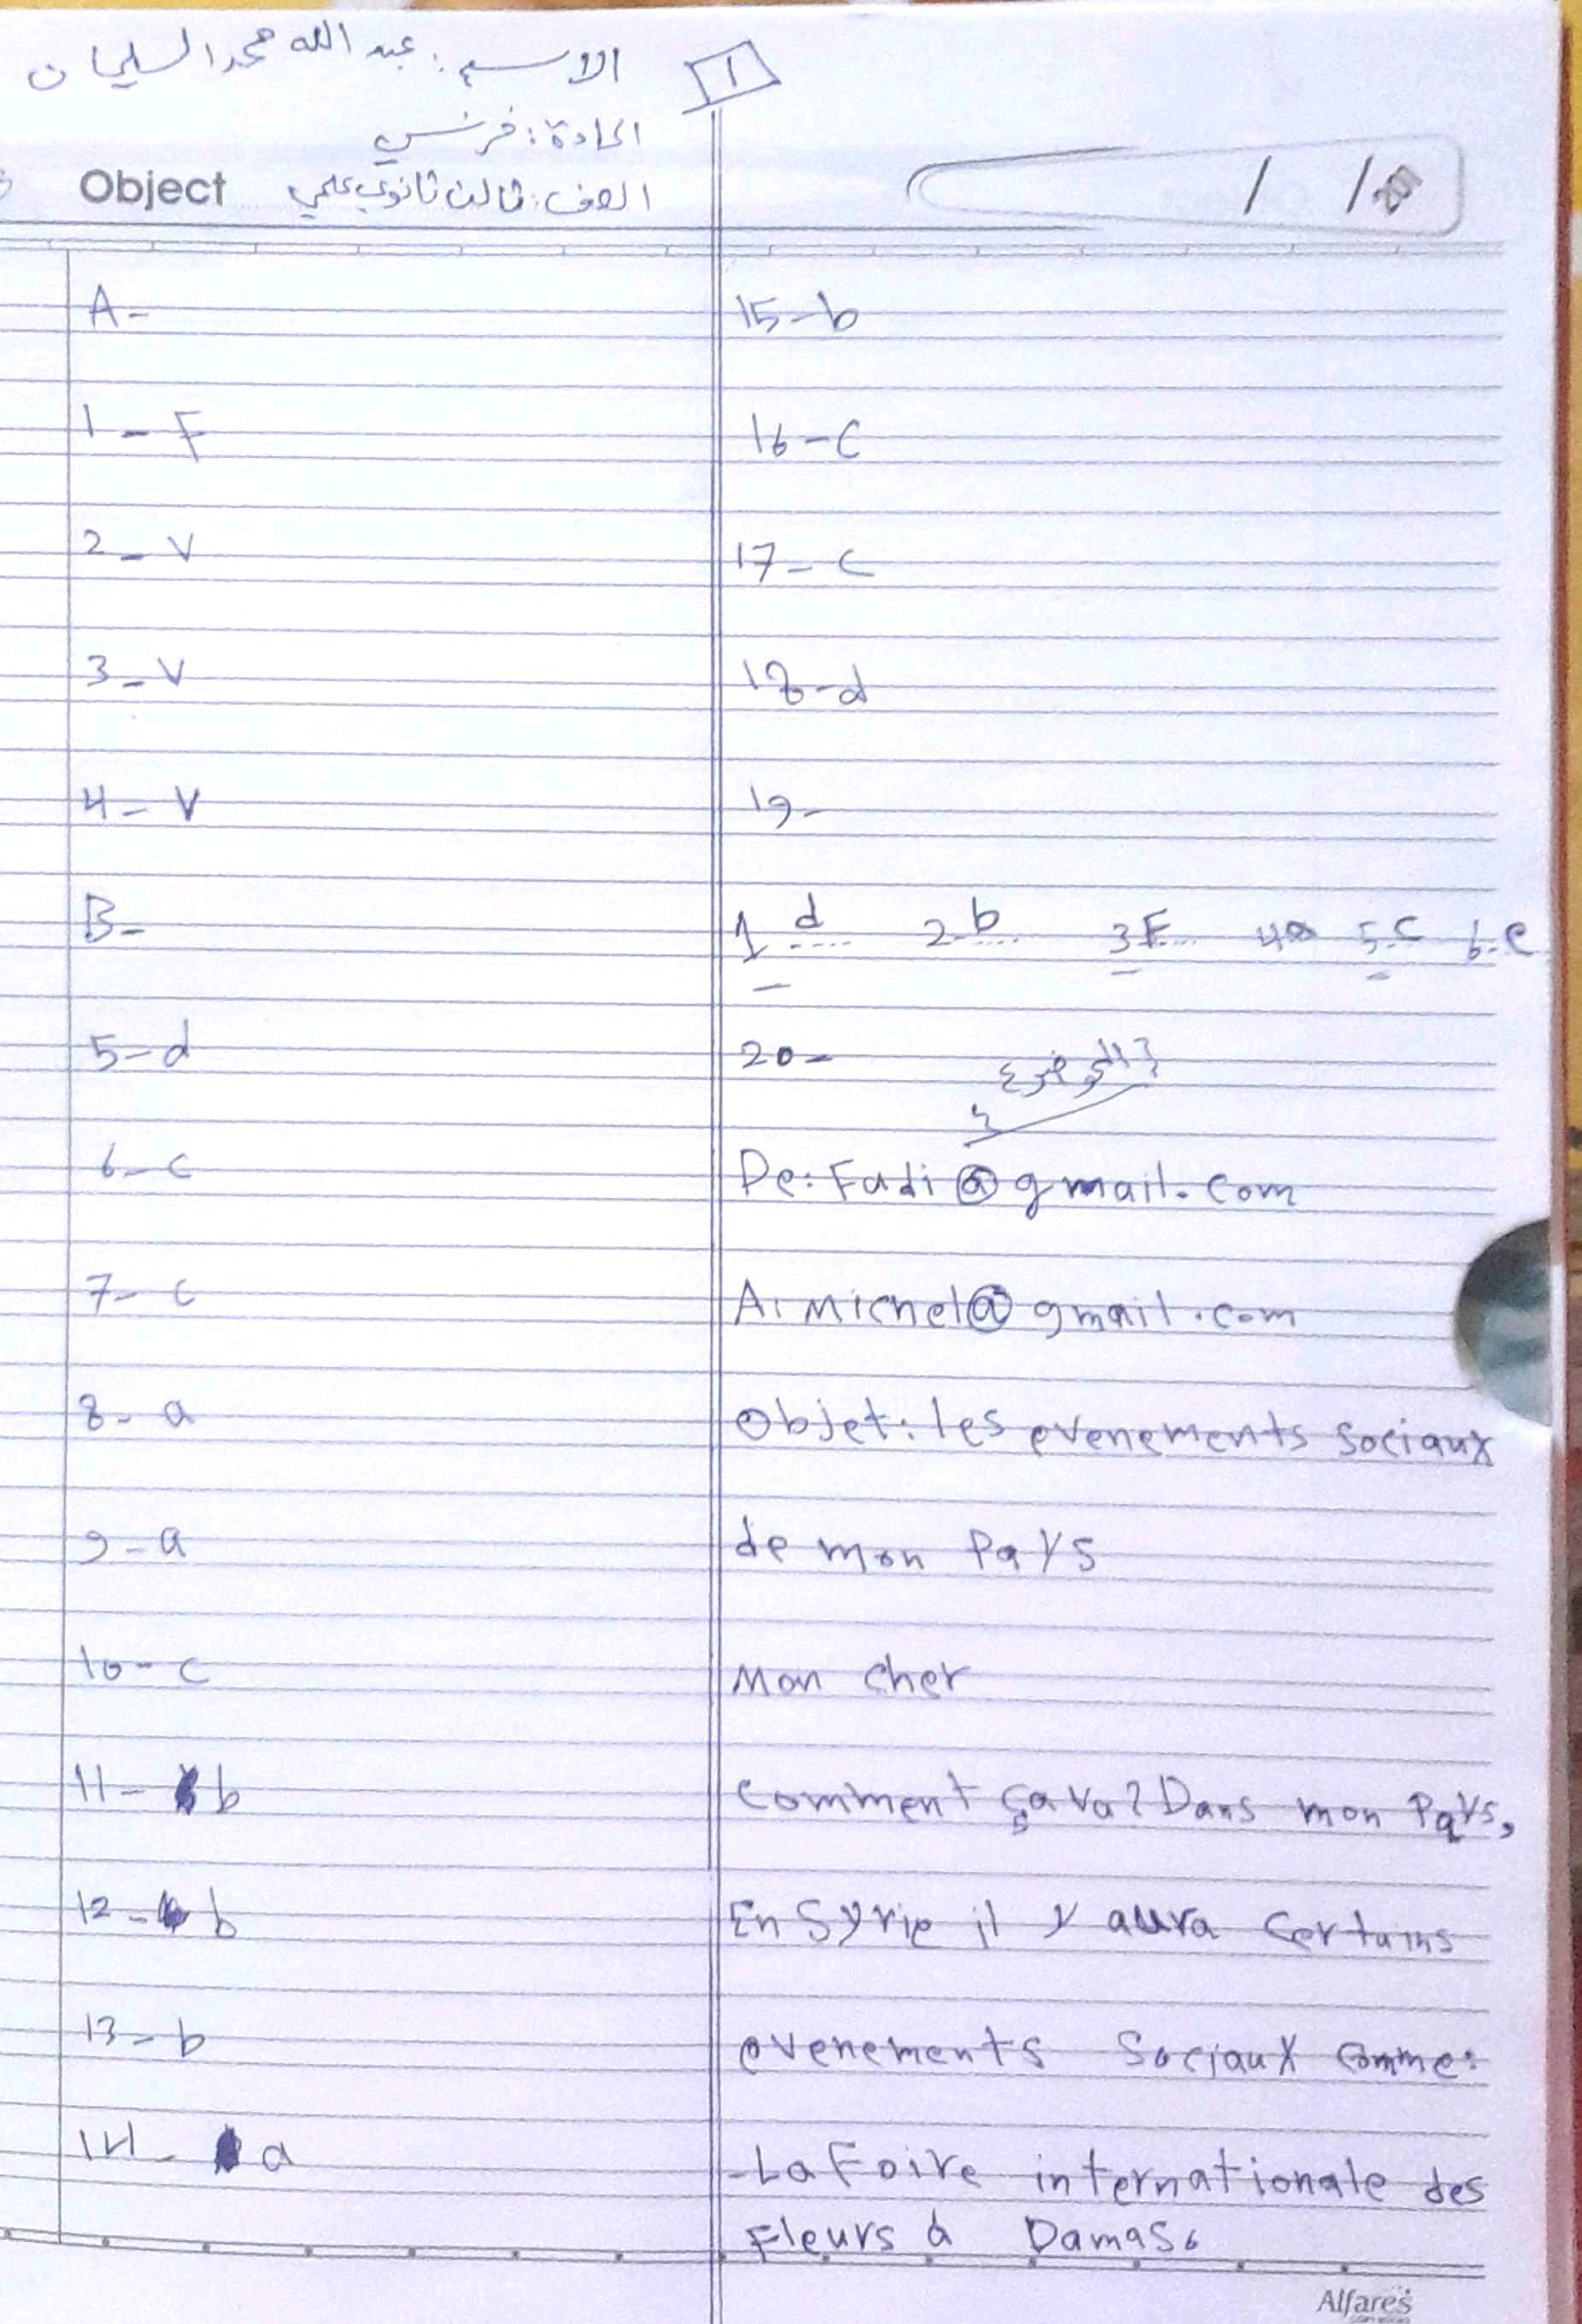 الاسم: عبد الله محمد السليمان
1
المادة: فرنسي
Object
الصف: ثالث ثانوي علمي
/ /201
A-
1- F
2- V
3- V
4- V
B-
5- d
6- c
7- c
8- a
9- a
10- c
11- b
12- b
13- b
14- a
15- b
16- c
17- c
18- d
19-
1 d 2-b 3 F 4a 5-c 6-e
20- الموضوع
De: Fadi@gmail.com
A: Michel@gmail.com
Objet: les evenements sociaux
de mon Pays
Mon cher
Comment ça va? Dans mon Pays,
En Syrie il y aura certains
evenements Sociaux comme:
-La Foire internationale des
Fleurs à Damas.
Alfares